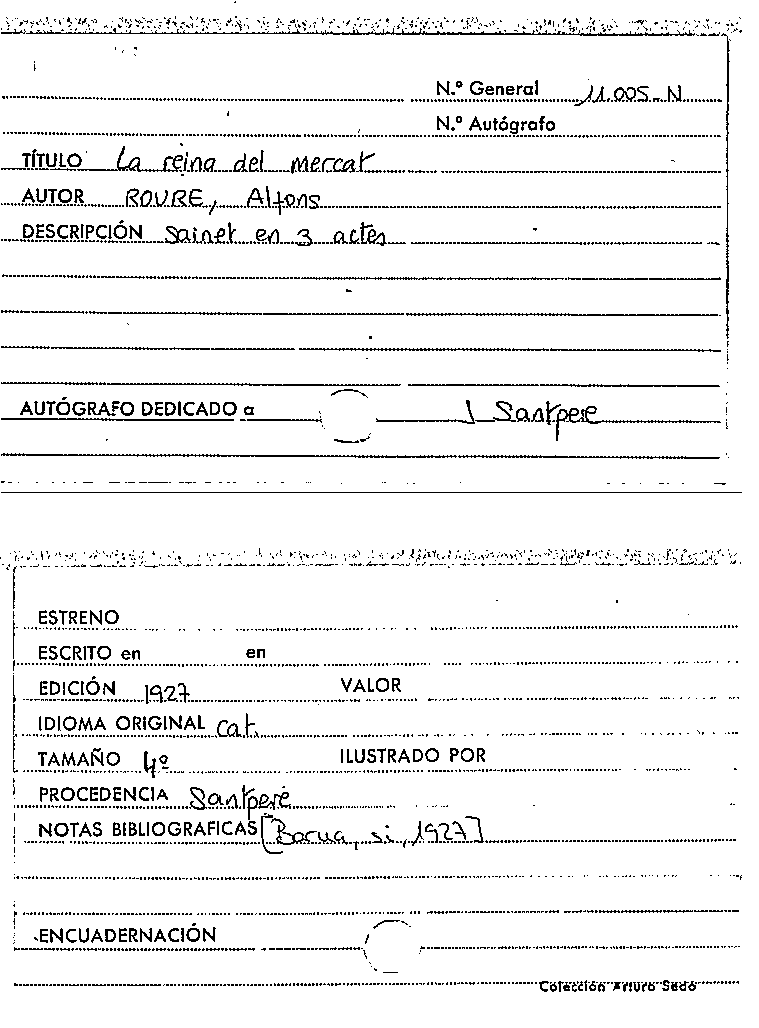 N.º General 11.005-N
N.º Autógrafo
TÍTULO La reina del mercat
AUTOR ROURE, Alfons
DESCRIPCIÓN Sainet en 3 actes
AUTÓGRAFO DEDICADO a J Santpere
ESTRENO
ESCRITO en en
EDICIÓN 1927 VALOR
IDIOMA ORIGINAL cat.
TAMAÑO 4º ILUSTRADO POR
PROCEDENCIA Santpere
NOTAS BIBLIOGRAFICAS [Barna, si, 1927]
ENCUADERNACIÓN
Colección Arturo Sedó